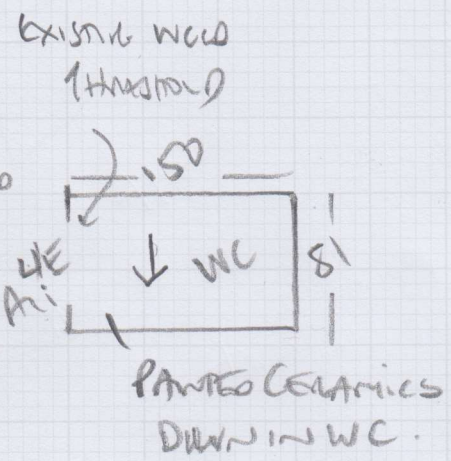 EXISTING WOOD
THRESHOLD
.50
WC
81
PAINTED CERAMICS
DOWN IN WC.